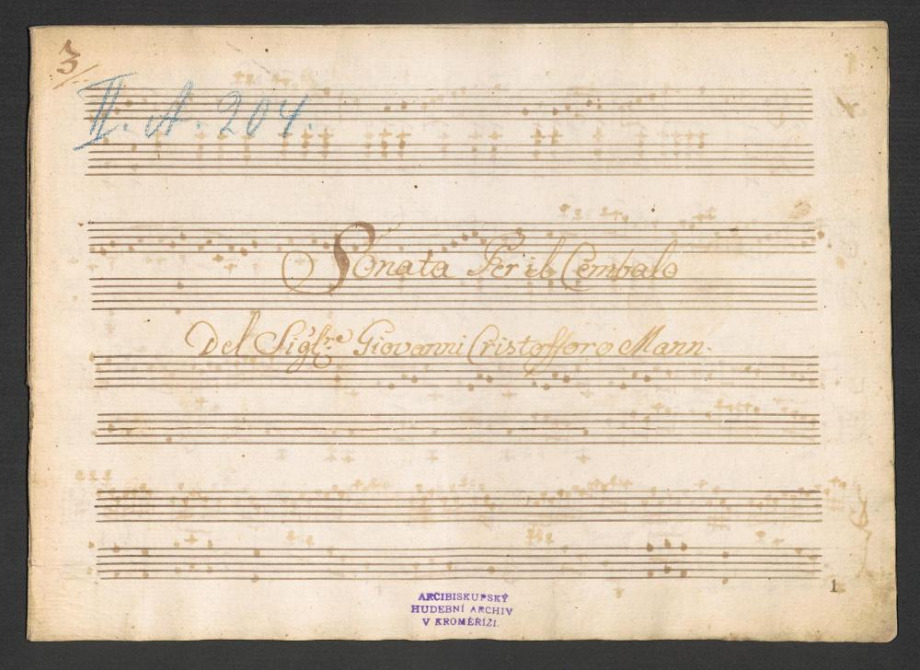 3
II. A. 204.
Sonata Per il Cembalo
Del Sigl:re Giovanni Cristofforo Mann.
1
ARCIBISKUPSKÝ
HUDEBNÍ ARCHIV
V KROMĚŘÍŽI.